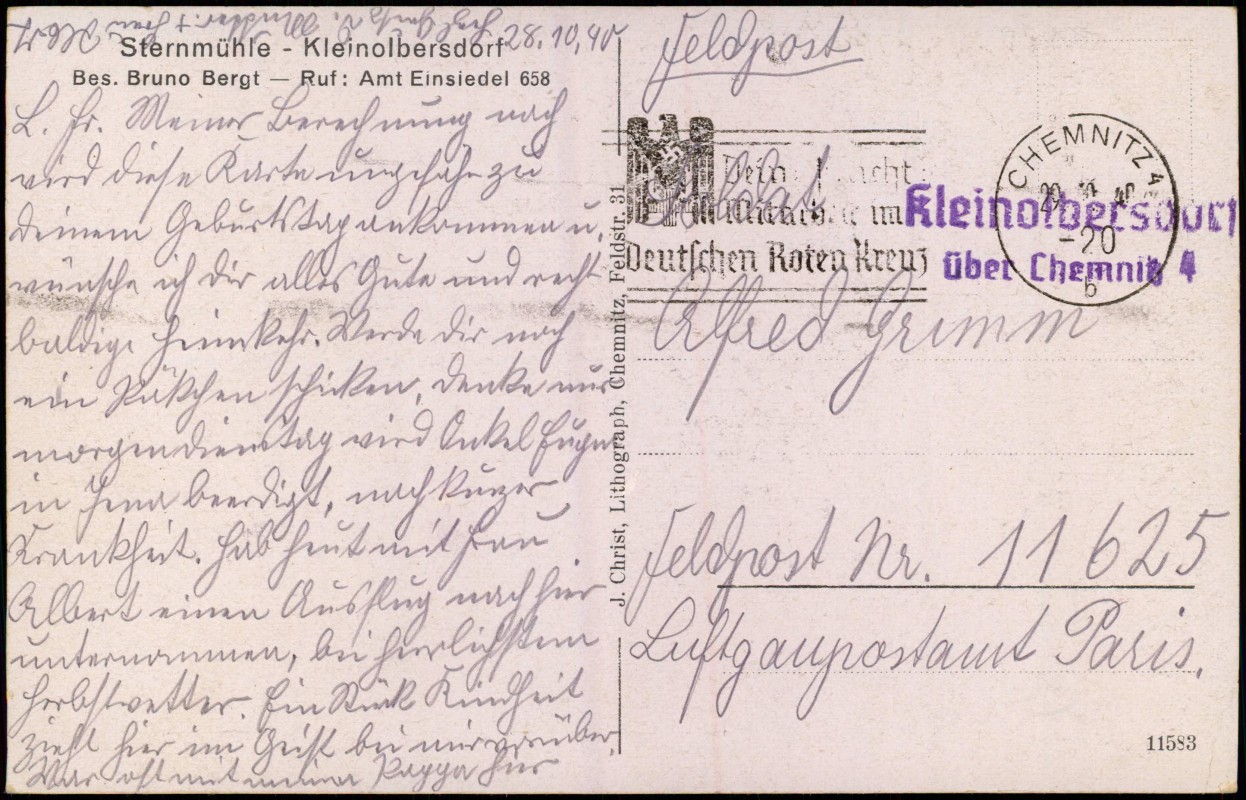 28.10.40
Sternmühle - Kleinolbersdorf
Bes. Bruno Bergt — Ruf: Amt Einsiedel 658
L. Fr. Meiner Berechnung nach
wird diese Karte ungefähr zu
deinem Geburtstag ankommen u.
wünsche ich dir alles Gute und recht
baldige Heimkehr. Werde dir noch
ein Päkchen schicken, denke nur
morgen Dienstag wird Onkel Eugen
in Jena beerdigt, nach kurzer
Krankheit. Hab heut mit Frau
Albert einen Ausflug nach hier
unternommen, bei herrlichstem
Herbstwetter. Ein Stück Kindheit
zieht hier im Geist bei mir vorüber,
War oft mit meinem Pappa hier
J. Christ, Lithograph, Chemnitz, Feldstr. 31
Feldpost
Dein
im
Deutschen Roten Kreuz
CHEMNITZ 4
29. 40
-20
b
Kleinolbersdorf
über Chemnitz 4
Alfred Grimm
Feldpost Nr. 11625
Luftgaupostamt Paris.
11583